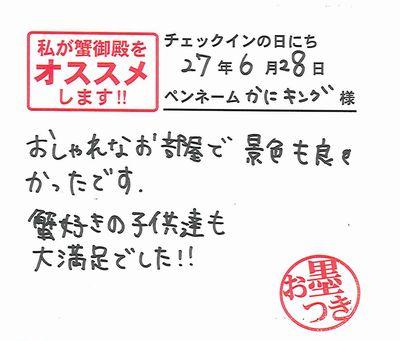 私が蟹御殿を
オススメ
します!!
チェックインの日にち
27年6月28日
ペンネーム かにキング 様
おしゃれなお部屋で 景色も良き
かったです.
蟹好きの子供達も
大満足でした!!
お墨つき